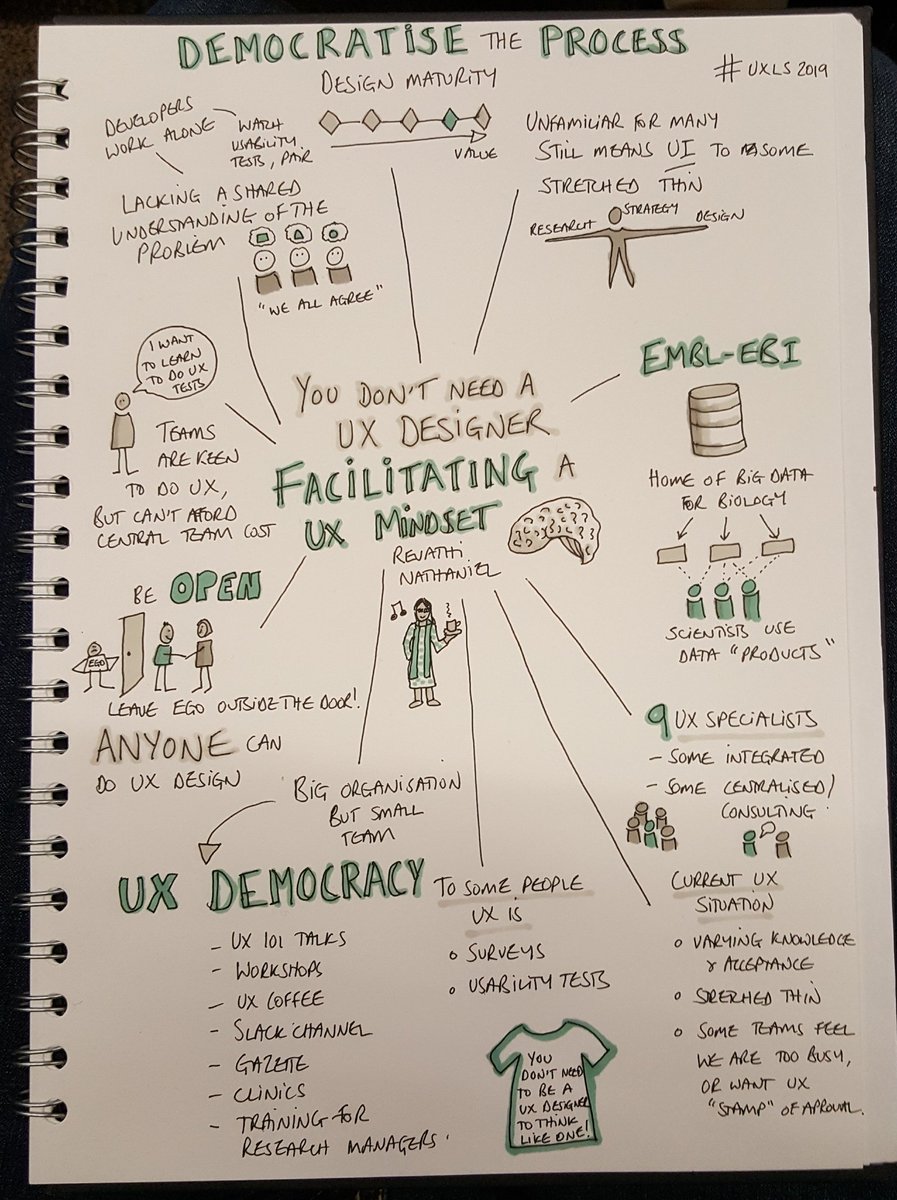 DEMOCRATISE THE PROCESS
# UXLS 2019
DESIGN MATURITY
VALUE
DEVELOPERS
WORK ALONE
WATCH
USABILITY
TESTS, PAIR
LACKING A SHARED
UNDERSTANDING OF THE
PROBLEM
"WE ALL AGREE"
UNFAMILIAR FOR MANY
STILL MEANS UI TO SOME
STRETCHED THIN
RESEARCH
STRATEGY
DESIGN
I WANT
TO LEARN
TO DO UX
TESTS
TEAMS
ARE KEEN
TO DO UX,
BUT CAN'T AFFORD
CENTRAL TEAM COST
YOU DON'T NEED A
UX DESIGNER
FACILITATING A
UX MINDSET
REVATHI
NATHANIEL
EMBL-EBI
HOME OF BIG DATA
FOR BIOLOGY
SCIENTISTS USE
DATA "PRODUCTS"
BE OPEN
EGO
LEAVE EGO OUTSIDE THE DOOR!
ANYONE CAN
DO UX DESIGN
9 UX SPECIALISTS
- SOME INTEGRATED
- SOME CENTRALISED/
CONSULTING
BIG ORGANISATION
BUT SMALL
TEAM
UX DEMOCRACY
- UX 101 TALKS
- WORKSHOPS
- UX COFFEE
- SLACK CHANNEL
- GAZETTE
- CLINICS
- TRAINING FOR
RESEARCH MANAGERS.
TO SOME PEOPLE
UX IS
o SURVEYS
o USABILITY TESTS
YOU
DON'T NEED
TO BE A
UX DESIGNER
TO THINK
LIKE ONE!
CURRENT UX
SITUATION
o VARYING KNOWLEDGE
& ACCEPTANCE
o STRETCHED THIN
o SOME TEAMS FEEL
WE ARE TOO BUSY,
OR WANT UX
"STAMP" OF APROVAL.